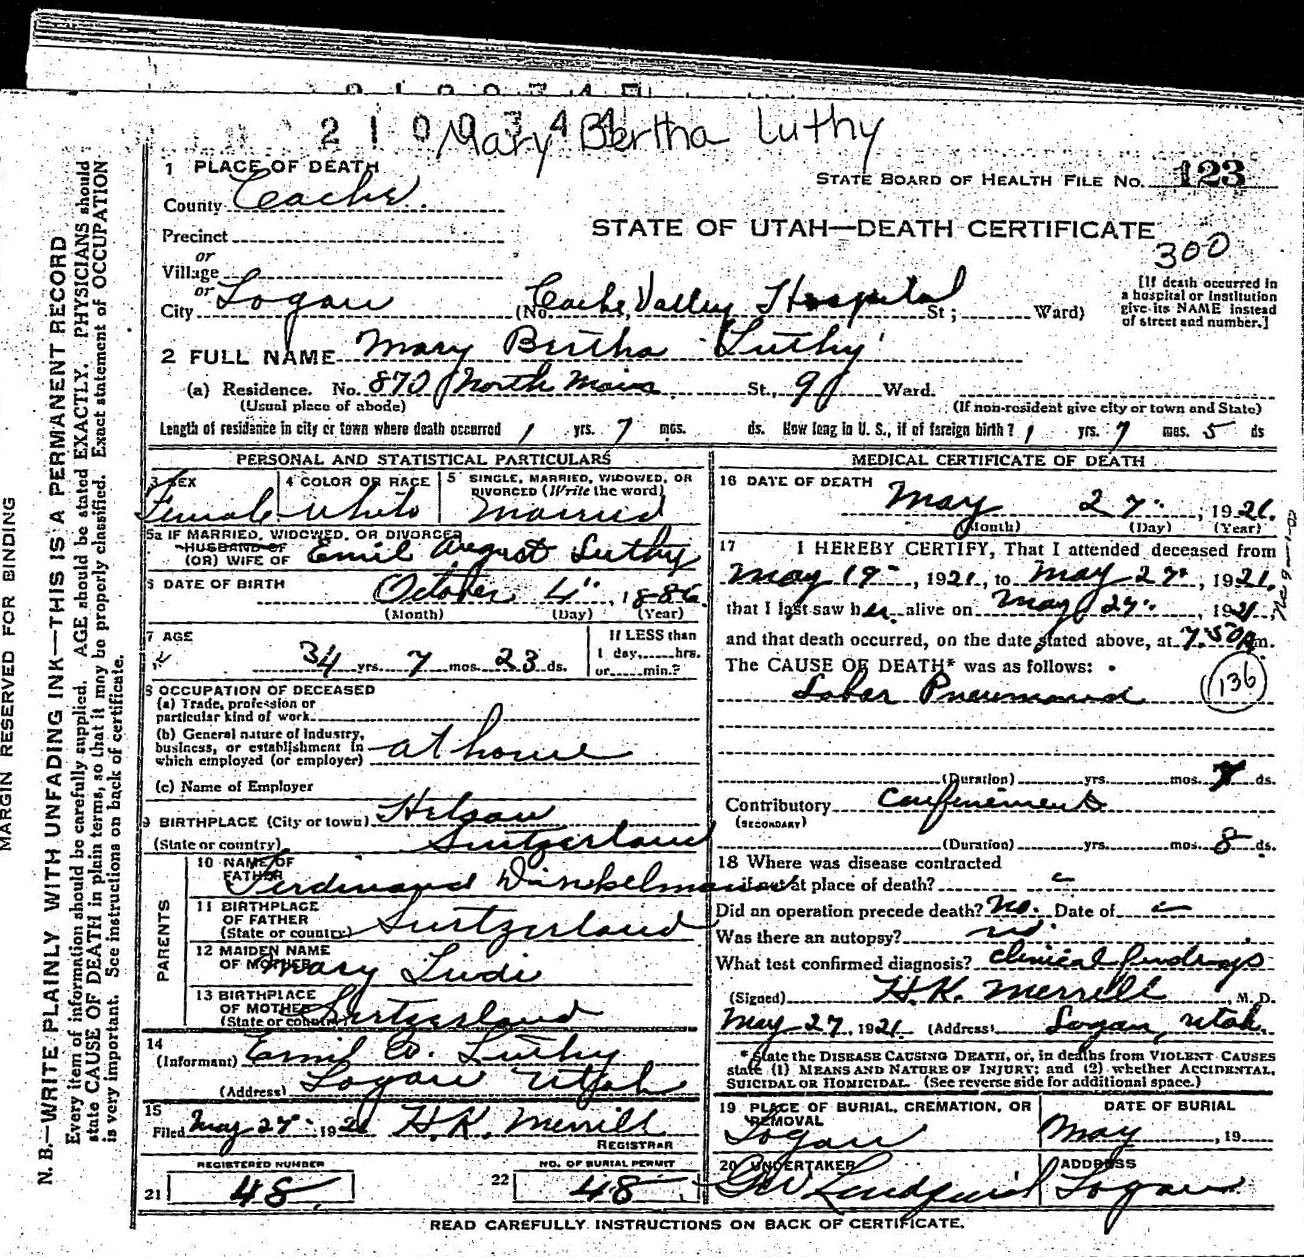 210934
Mary Bertha Luthy
1 PLACE OF DEATH
STATE BOARD OF HEALTH FILE No. 123
County Cache.
STATE OF UTAH—DEATH CERTIFICATE
300
Precinct
or
Village
or
City Logan (No. Cache Valley Hospital St; Ward)
[If death occurred in a hospital or institution give its NAME instead of street and number.]
2 FULL NAME Mary Bertha Luthy
(a) Residence. No. 870 North Main St., 9 Ward.
(Usual place of abode) (If non-resident give city or town and State)
Length of residence in city or town where death occurred 1 yrs. 7 mos. ds. How long in U. S., if of foreign birth? 1 yrs. 7 mos. 5 ds
PERSONAL AND STATISTICAL PARTICULARS
3 SEX 4 COLOR OR RACE 5 SINGLE, MARRIED, WIDOWED, OR DIVORCED (Write the word)
Female White Married
5a IF MARRIED, WIDOWED, OR DIVORCED
HUSBAND OF
(OR) WIFE OF Emil August Luthy
6 DATE OF BIRTH October 4", 1886
(Month) (Day) (Year)
7 AGE
34 yrs. 7 mos. 23 ds.
If LESS than
1 day, hrs.
or min.?
8 OCCUPATION OF DECEASED
(a) Trade, profession or
particular kind of work
(b) General nature of industry,
business, or establishment in
which employed (or employer) at home
(c) Name of Employer
9 BIRTHPLACE (City or town)
(State or country) Switzerland
PARENTS
10 NAME OF FATHER Ferdinand Winkelman
11 BIRTHPLACE
OF FATHER
(State or country) Switzerland
12 MAIDEN NAME
OF MOTHER Mary Ludi
13 BIRTHPLACE
OF MOTHER
(State or country) Switzerland
14
(Informant) Emil A. Luthy
(Address) Logan Utah
15
Filed May 27 1921 H.K. Merrill
REGISTRAR
REGISTERED NUMBER NO. OF BURIAL PERMIT
21 48 22 48
MEDICAL CERTIFICATE OF DEATH
16 DATE OF DEATH May 27", 1921.
(Month) (Day) (Year)
17 I HEREBY CERTIFY, That I attended deceased from
May 19", 1921, to May 27", 1921,
that I last saw her alive on May 27", 1921,
and that death occurred, on the date stated above, at 7.50 A m.
The CAUSE OF DEATH* was as follows:
Lobar Pneumonia
136
(Duration) yrs. mos. 7 ds.
Contributory Confinement
(SECONDARY)
(Duration) yrs. mos. 8 ds.
18 Where was disease contracted
if not at place of death?
Did an operation precede death? No. Date of
Was there an autopsy? no.
What test confirmed diagnosis? clinical findings
(Signed) H.K. Merrill, M. D.
May 27, 1921 (Address) Logan, Utah.
* State the DISEASE CAUSING DEATH, or, in deaths from VIOLENT CAUSES
state (1) MEANS AND NATURE OF INJURY; and (2) whether ACCIDENTAL,
SUICIDAL OR HOMICIDAL. (See reverse side for additional space.)
19 PLACE OF BURIAL, CREMATION, OR REMOVAL DATE OF BURIAL
Logan May, 19
20 UNDERTAKER ADDRESS
G W Lindquist Logan
READ CAREFULLY INSTRUCTIONS ON BACK OF CERTIFICATE.
MARGIN RESERVED FOR BINDING
N. B.—WRITE PLAINLY WITH UNFADING INK—THIS IS A PERMANENT RECORD
Every item of information should be carefully supplied. AGE should be stated EXACTLY. PHYSICIANS should
state CAUSE OF DEATH in plain terms, so that it may be properly classified. Exact statement of OCCUPATION
is very important. See instructions on back of certificate.